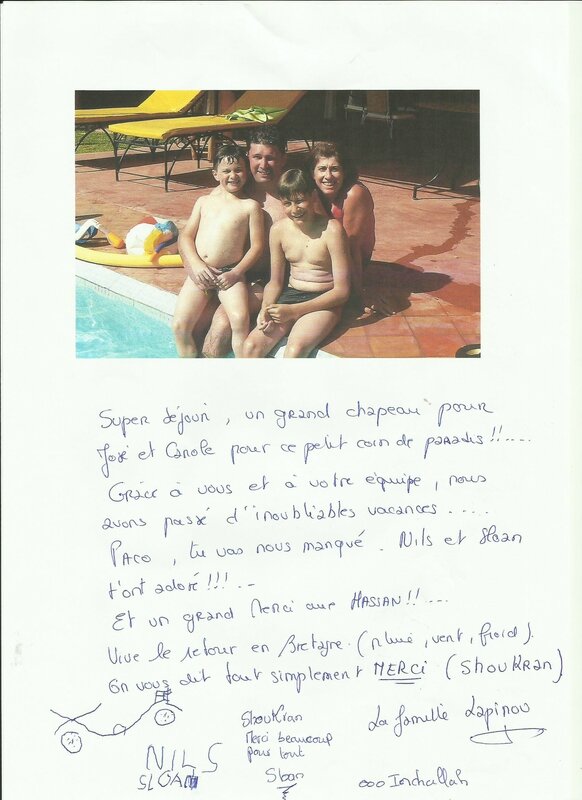 Super séjour, un grand chapeau pour
José et Carole pour ce petit coin de paradis!!....
Grâce à vous et à votre équipe, nous
avons passé d'inoubliables vacances.....
PACO, tu vas nous manqué. Nils et Sloan
t'ont adoré!!!..
Et un grand Merci aux HASSAN!!....
Vive le retour en Bretagne. (pluie, vent, froid).
On vous dit tout simplement MERCI (ShouKran)
ShouKran
Merci beaucoup
pour tout
Sloan
La famille Lapinou
NILS
SLOAN
ooo Inchallah